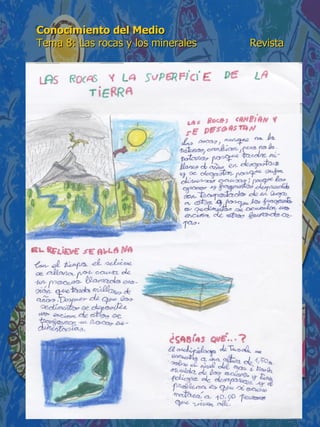 Conocimiento del Medio
Tema 8: Las rocas y los minerales Revista
LAS ROCAS Y LA SUPERFICIE DE LA
TIERRA
LAS ROCAS CAMBIAN Y
SE DESGASTAN
Las rocas, aunque no lo
cambian, pero no lo
porque tarda mi-
llones de años en desgastarse
y se desgastan porque
porque los
fragmentos
son transportados de un lugar
a otro y porque los fragmentos
o sedimentos se
encima de otros formando ca-
pas.
EL RELIEVE SE ALLANA
Con el tiempo el relieve
se allana por causa de
un proceso llamado ero-
sión que tarda millones de
años. Después de que los
sedimentos se depositen
uno encima de otros se
en rocas se-
dimentarias.
¿SABÍAS QUÉ...?
El archipiélago de Tuvalu se
encuentra a una altura de
sobre el nivel del mar y
y tiene
peligro de desaparecer y el
problema es que si ocurre
mataría a 10.00 personas
que viven allí.